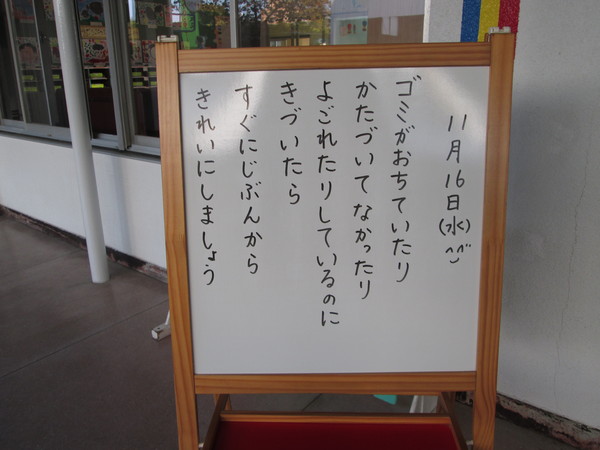 11月16日(水)^^
ゴミがおちていたり
かたづいてなかったり
よごれたりしているのに
きづいたら
すぐにじぶんから
きれいにしましょう